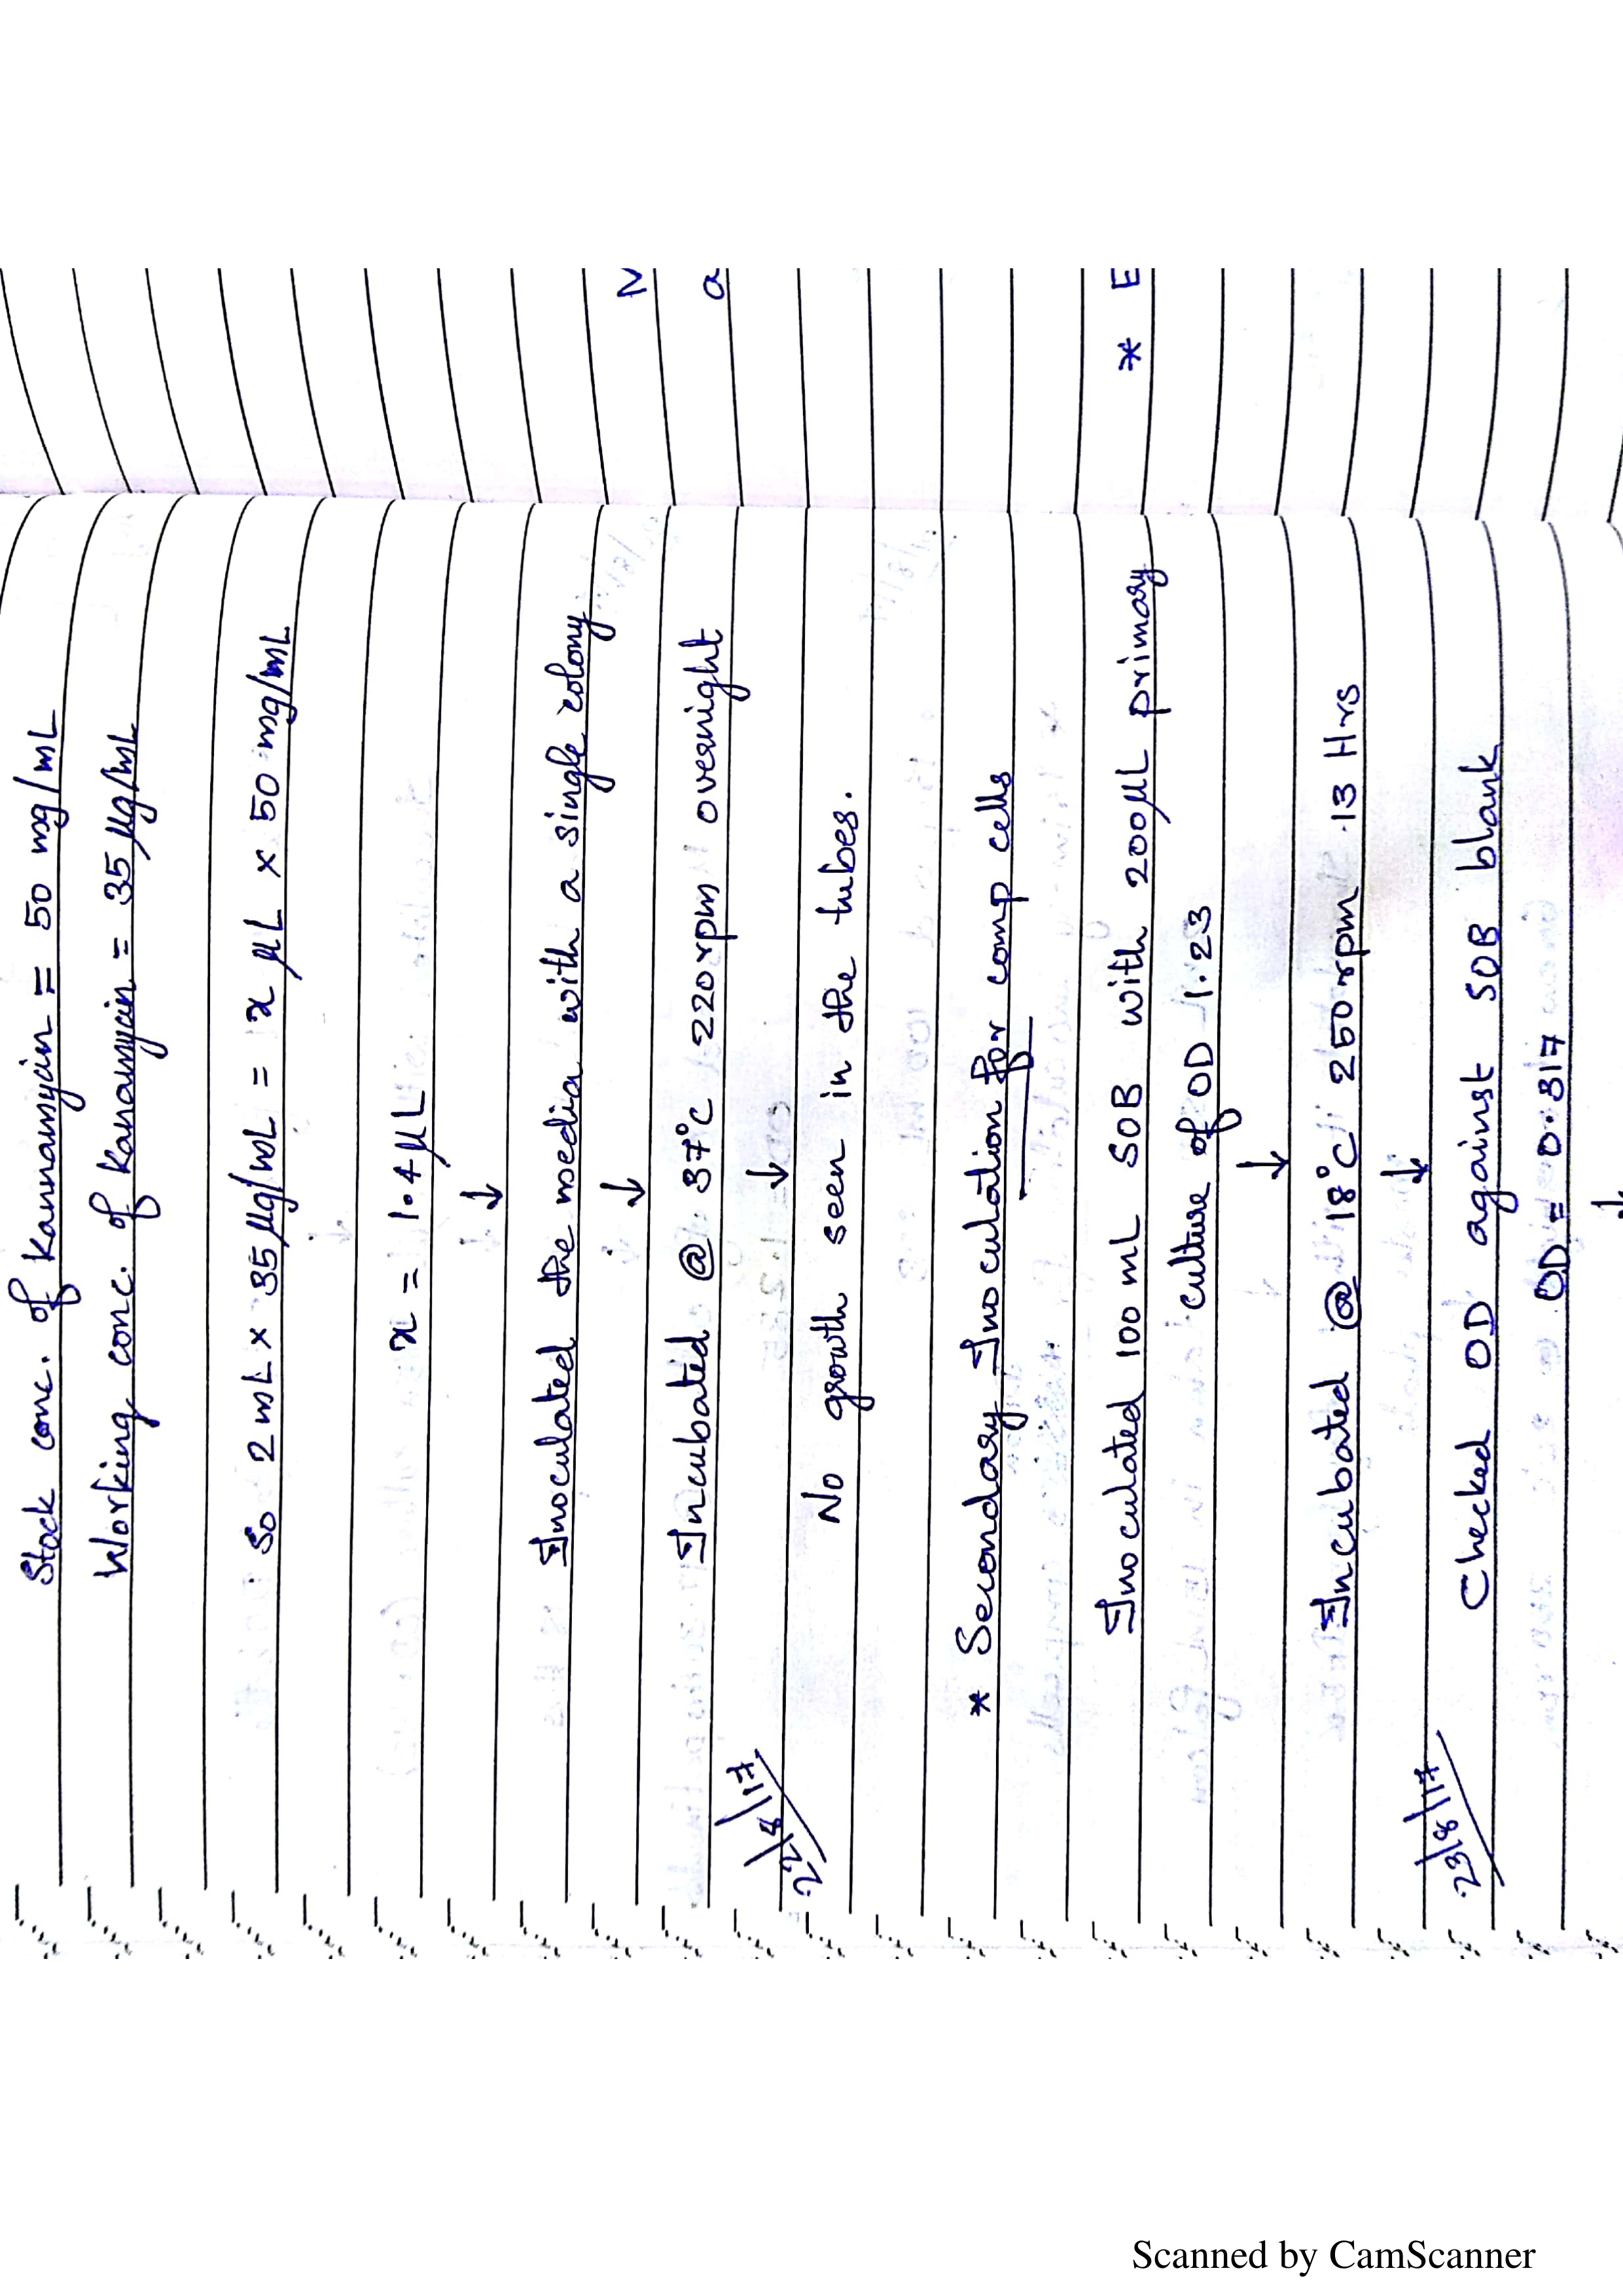 Stock conc. of Kannamycin = 50 mg/mL
Working conc. of Kanamycin = 35 µg/mL
So 2 mL x 35 µg/mL = x µL x 50 mg/mL
x = 1.4 µL
↓
Inoculated the media with a single colony
↓
Incubated @ 37°C 220 rpm overnight
↓
22/8/17
No growth seen in the tubes.
* Secondary Inoculation for comp cells
Inoculated 100 mL SOB with 200µL primary
culture of OD 1.23
↓
Incubated @ 18°C 250 rpm 13 Hrs
↓
23/8/17
Checked OD against SOB blank
OD = 0.317
↓
* E
Scanned by CamScanner